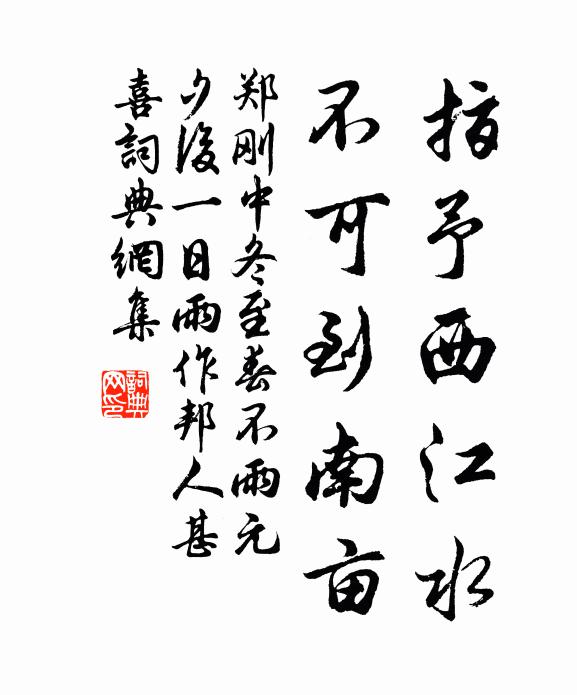 指予西江水
不可到南亩
郑刚中冬至春不雨元
夕後一日雨作邦人甚
喜詞典網集
詞典
网印